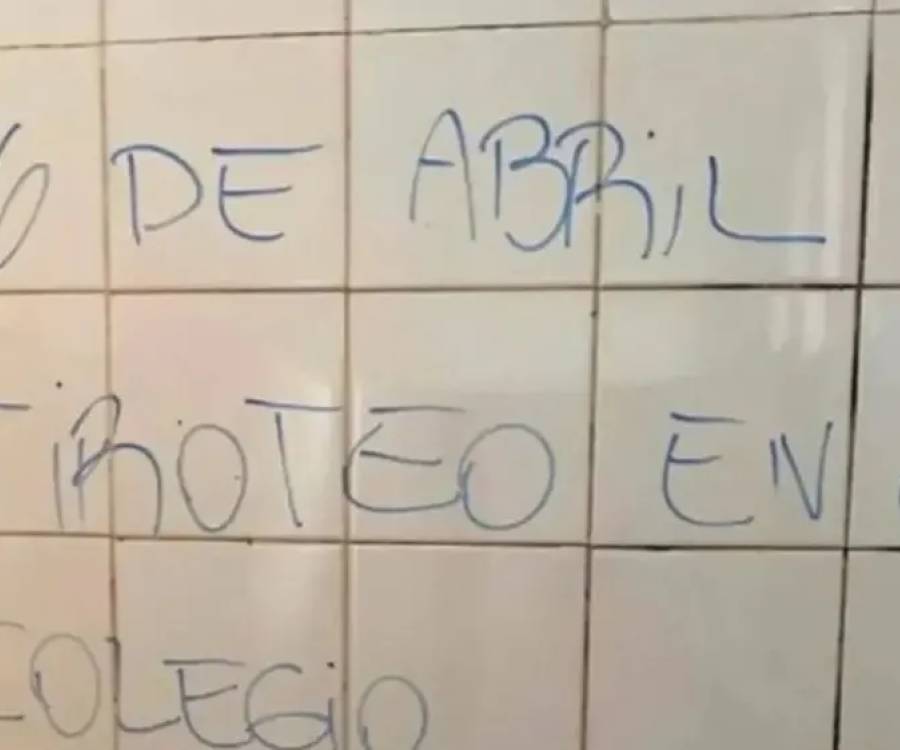 6 DE ABRIL
TIROTEO EN
COLEGIO